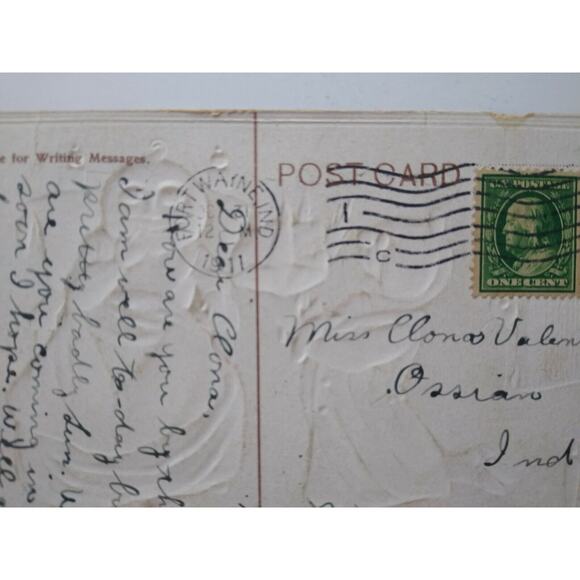 e for Writing Messages.
POST CARD
FORT WAYNE, IND
12 M
1911
1
C
U.S. POSTAGE
ONE CENT
Dear Clona,
How are you by th
I am well to-day bu
pretty badly Sun. W
are you coming in
soon I hope. Well
Miss Clona Valen
Ossian
Ind